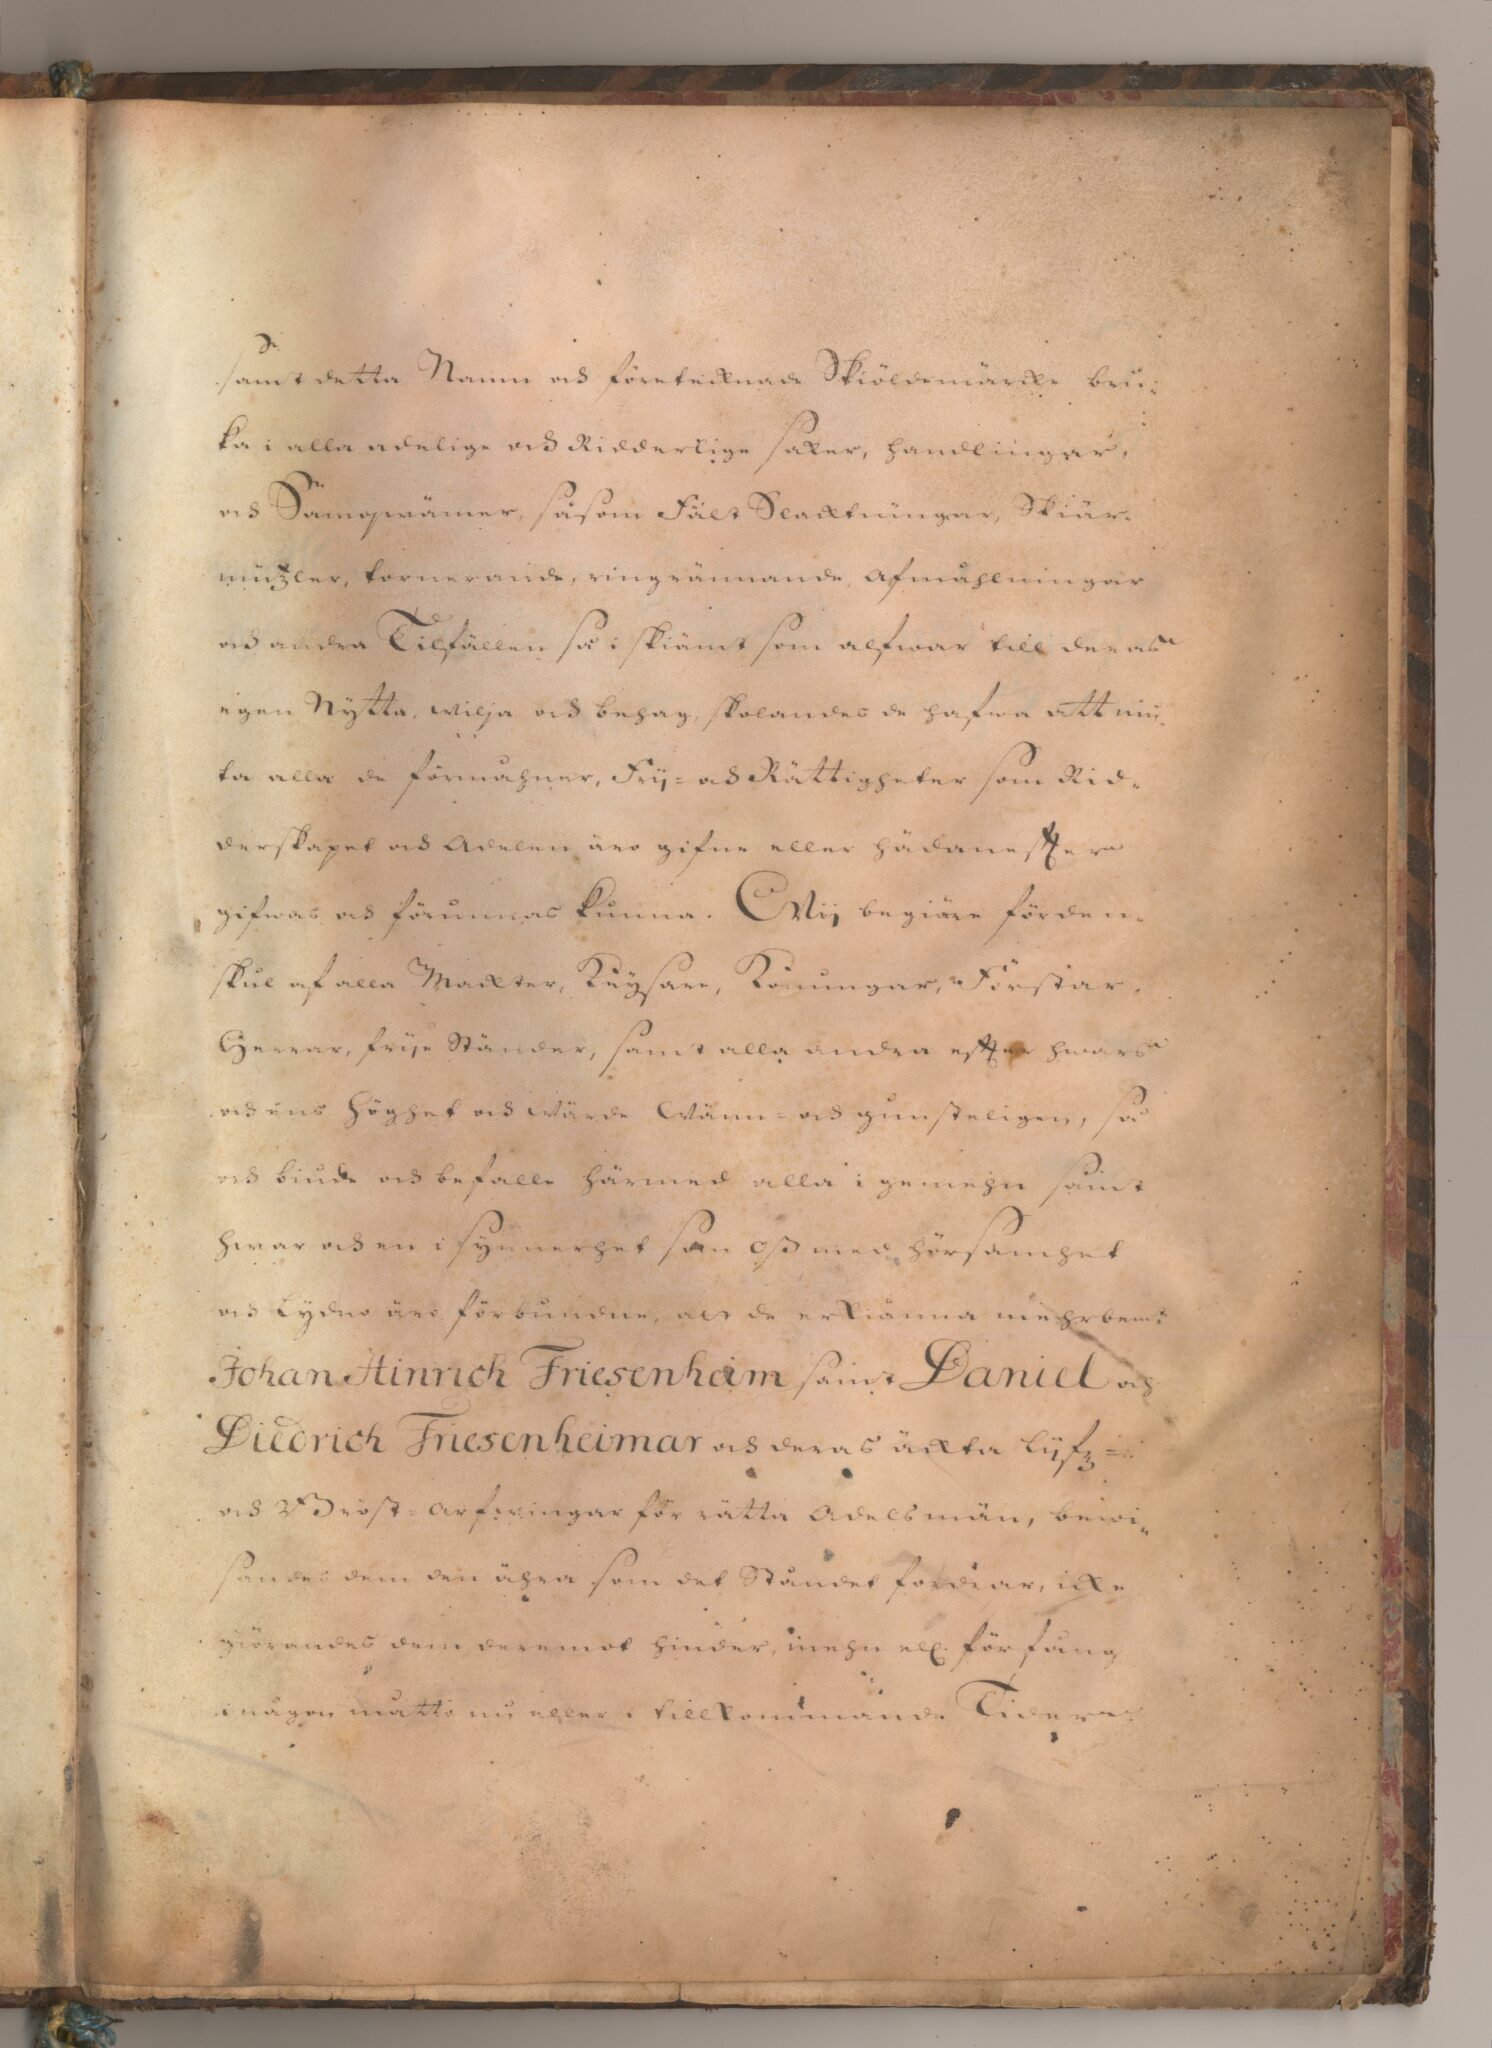 samt detta Namn och företeknade Skiöldemärcke bru-
ka i alla adelige och Ridderlige saker, handlingar,
och Samqwämer, såsom Fält Slacktningar, Skiär-
mützler, tornerande, ringrännande, afmåhlningar
och andra Tilfällen så i skiämt som alfwar till deras
egen Nytta, wilja och behag, skolandes de hafwa att niu-
ta alla de förmåhner, Frij- och Rättigheter som Rid-
derskapet och Adelen äro gifne eller hädanefter
gifwas och förunnas kunna. Wij begiäre förden-
skul af alla Mackter, Keÿsare, Konungar, Förstar,
Herrar, frije Ständer, samt alla andra efter hwars
och ens Höghet och wärde Wänn- och gunsteligen, så
och biude och befalle härmed alla i gemehn samt
hwar och en i synnerhet som Oss med hörsamhet
och lydno äro förbundne, att de erkiänna mehrbem:
Johan Hinrich Friesenheim samt Daniel och
Diedrich Friesenheimar och deras äckta Lijfz-
och Bröst-arfwingar för rätta Adelsmän, bewi-
sandes dem den ähra som det Ståndet fordrar, icke
giörandes dem deremot hinder, mehn ell. förfång
i någon måtto nu eller i tillkommande Tider.